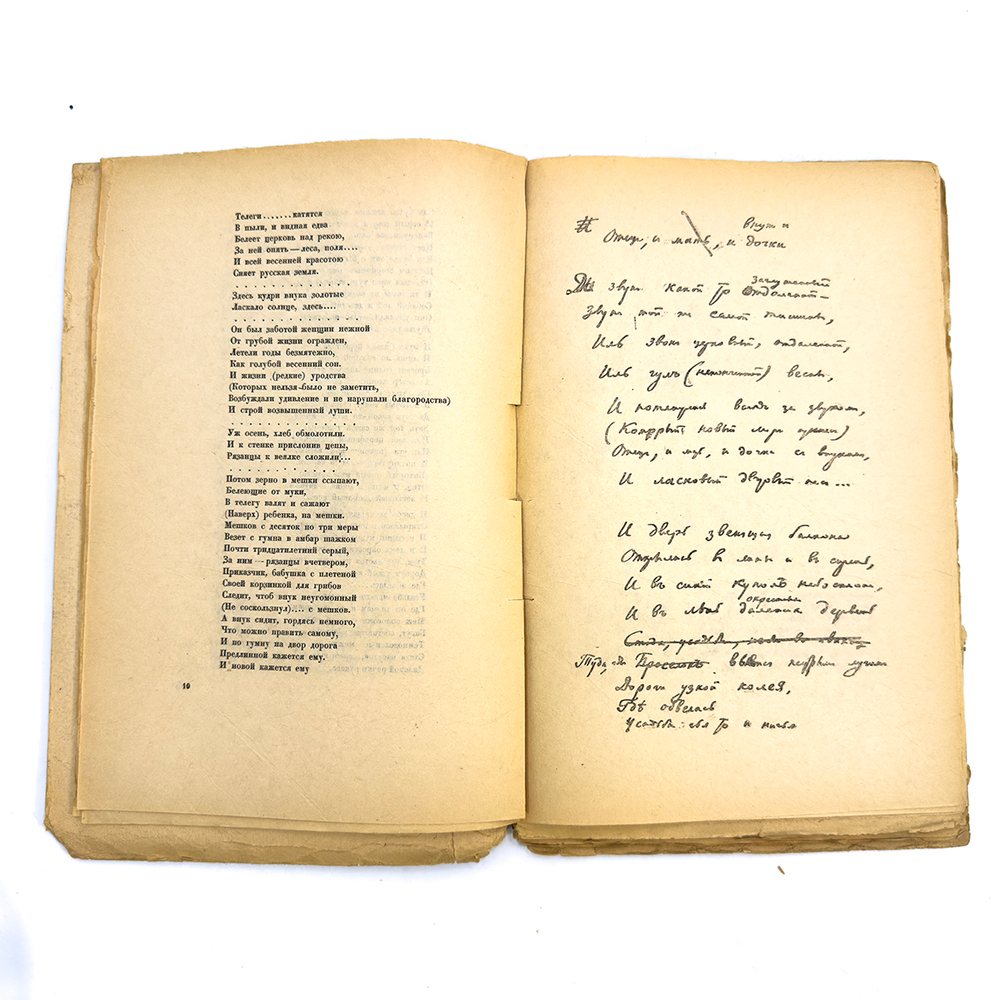 Телеги.......катятся
В пыли, и видная едва
Белеет церковь над рекою,
За ней опять — леса, поля....
И всей весенней красотою
Сияет русская земля.
. . . . . . . . . . . . . . .
Здесь кудри внука золотые
Ласкало солнце, здесь....
. . . . . . . . . . . . . . .
Он был заботой женщин нежной
От грубой жизни огражден,
Летели годы безмятежно,
Как голубой весенний сон.
И жизни (редкие) уродства
(Которых нельзя-было не заметить,
Возбуждали удивление и не нарушали благородства)
И строй возвышенный души.
. . . . . . . . . . . . . . .
Уж осень, хлеб обмолотили.
И к стенке прислонив цепы,
Рязанцы к веялке сложили...
. . . . . . . . . . . . . . .
Потом зерно в мешки ссыпают,
Белеющие от муки,
В телегу валят и сажают
(Наверх) ребенка, на мешки.
Мешков с десяток по три меры
Везет с гумна в амбар шажком
Почти тридцатилетний серый,
За ним — рязанцы вчетвером,
Приказчик, бабушка с плетеной
Своей корзинкой для грибов
Следит, чтоб внук неугомонный
(Не соскользнул).... с мешков.
А внук сидит, гордясь немного,
Что можно править самому,
И по гумну на двор дорога
Преллинной кажется ему.
И новой кажется ему
10
внук и
Отец, и мать, и дочки
звук какой то
Звук той же самой тишины,
Иль звон церковный, отдаленный,
Иль гулъ весны,
И потянулся вслед за звуком,
(Который новый мир принес)
Отец, и мать, и дочки с внуком,
И ласковый дворовый пес...
И дверь звенящая балкона
Открылась в липы и в сирень,
И въ синий куполъ небосклона,
окрестных
И въ лень деревень
Туда, где вьется
Дороги узкой колея,
Гдѣ обвелась
Усадьба чья то и ничья